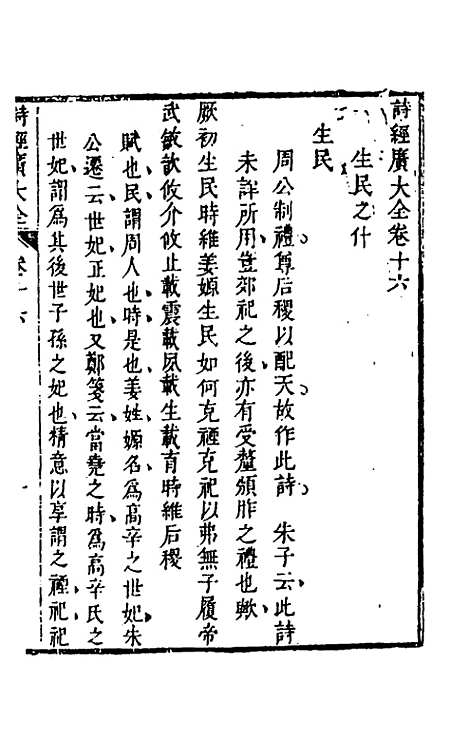 詩經廣大全卷十六
生民之什
生民
周公制禮尊后稷以配天故作此詩 朱子云此詩
未詳所用豈郊祀之後亦有受釐頒胙之禮也歟
厥初生民時維姜嫄生民如何克禋克祀以弗無子履帝
武敏歆攸介攸止載震載夙載生載育時維后稷
賦也民謂周人也時是也姜姓嫄名為高辛之世妃朱
公遷云世妃正妃也又鄭箋云當堯之時為高辛氏之
世妃謂為其後世子孫之妃也精意以享謂之禋祀祀
詩經廣大全
卷十六